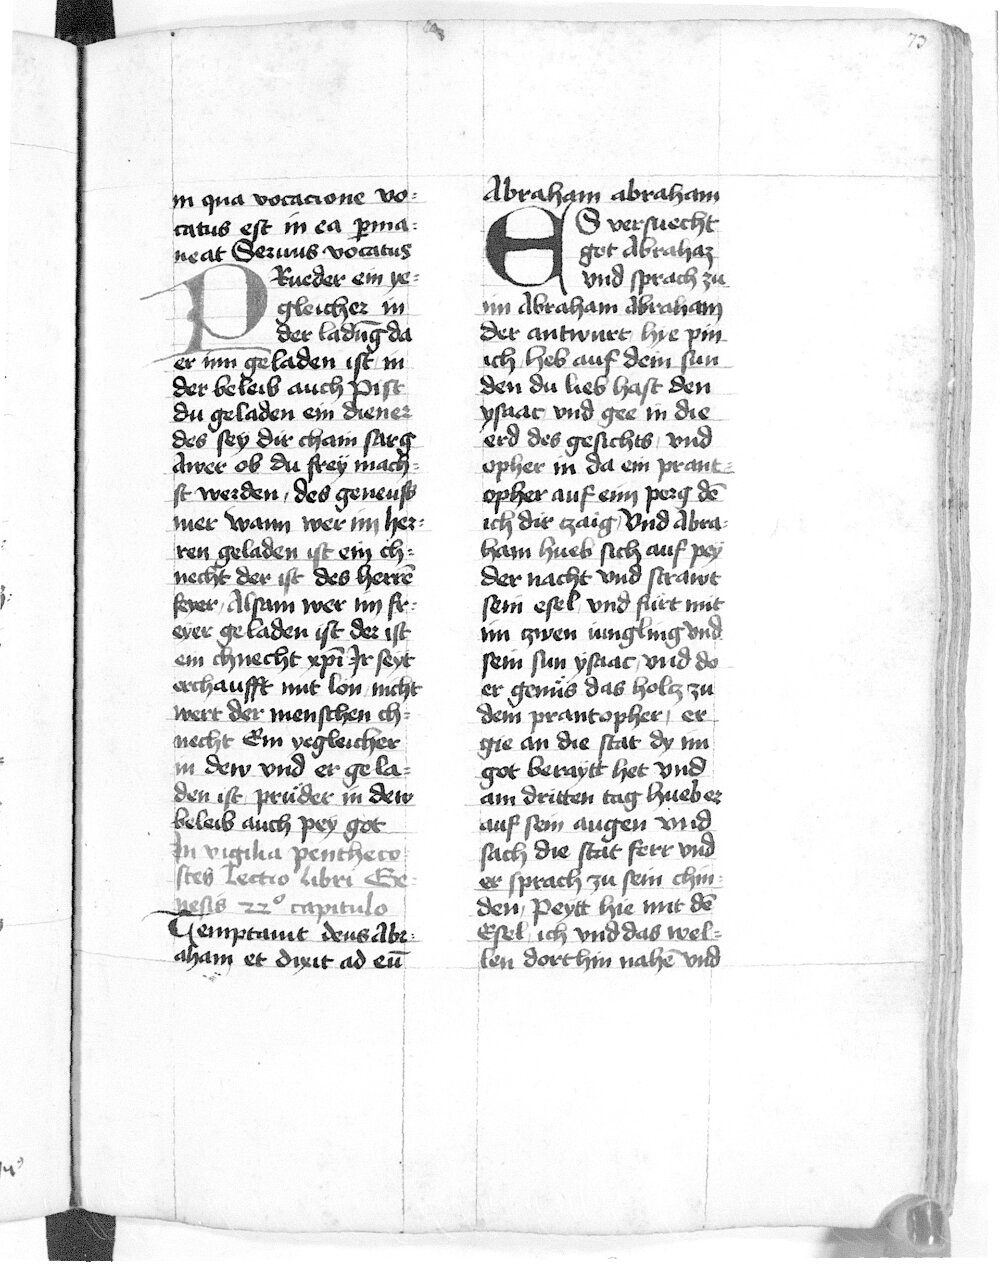 73
in qua vocacione vo-
catus est in ea pma-
neat Seruus vocatus
PRueder ein ye-
gleicher in
der ladūg da
er inn geladen ist in
der beleib auch Pist
du geladen ein diener
des sey dir chain sarg
Awer ob du frey mach-
st werden / des geneuss
mer wann wer im her-
ren geladen ist ein ch-
necht der ist des herrē
freyer / Alsam wer im fr-
eyer geladen ist der ist
ein chnecht xpi Ir seyt
erchaufft mit lon / nicht
wert der menschen ch-
necht Ein yegleicher
in dew vnd er gela-
den ist prüder in dew
beleib auch pey got
In vigilia pentheco
sten Lectio libri Ge-
nesis 22º capitulo
Temptauit deus Abr-
aham et dixit ad eū
Abraham abraham
ES versuecht
got Abrahaz
vnd sprach zu
im Abraham Abraham
der antwurt hie pin
ich / heb auf dein sun
den du lieb hast den
ysaac vnd gee in die
erd des gesichts / vnd
opher in da ein prant-
opher auf eim perg dē
ich dir czaig / Vnd Abra-
ham hueb sich auf pey
der nacht vnd strawt
sein esel / vnd fürt mit
im zwen iungling vnd
sein sun ysaac / vnd do
er genüs das holcz zu
dem prantopher / er
gie an die stat dy im
got beraytt het vnd
am dritten tag hueb er
auf sein augen vnd
sach die stat ferr vnd
er sprach zu sein chin-
den / Peytt hie mit dē
Esel / ich vnd das wel-
len dorthin nahē vnd